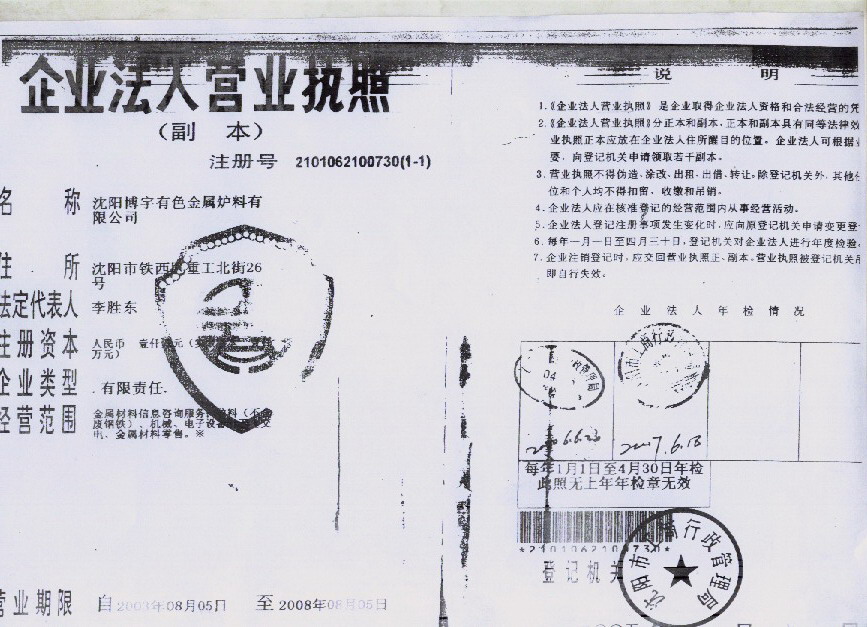 企业法人营业执照
（副 本）
注册号 2101062100730(1-1)
名 称 沈阳博宇有色金属炉料有
限公司
住 所 沈阳市铁西区重工北街26
号
法定代表人 李胜东
注册资本 人民币 壹仟
万元）
企业类型 有限责任
经营范围 金属材料信息咨询服务
废钢铁）、机械、电子设备
电、金属材料零售。※
营业期限 自2003年08月05日 至2008年08月05日
说 明
1.《企业法人营业执照》是企业取得企业法人资格和合法经营的凭
2.《企业法人营业执照》分正本和副本，正本和副本具有同等法律效
业执照正本应放在企业法人住所醒目的位置。企业法人可根据业
要，向登记机关申请领取若干副本。
3. 营业执照不得伪造、涂改、出租、出借、转让。除登记机关外，其他任
位和个人均不得扣留，收缴和吊销。
4. 企业法人应在核准登记的经营范围内从事经营活动。
5. 企业法人登记注册事项发生变化时，应向原登记机关申请变更登
6. 每年一月一日至四月三十日，登记机关对企业法人进行年度检验。
7. 企业注销登记时，应交回营业执照正、副本。营业执照被登记机关吊
即自行失效。
企业法人年检情况
2006.6.23 2007.6.18
每年1月1日至4月30日年检
此照无上年年检章无效
*2101062100730*
登记机关
沈阳市工商行政管理局